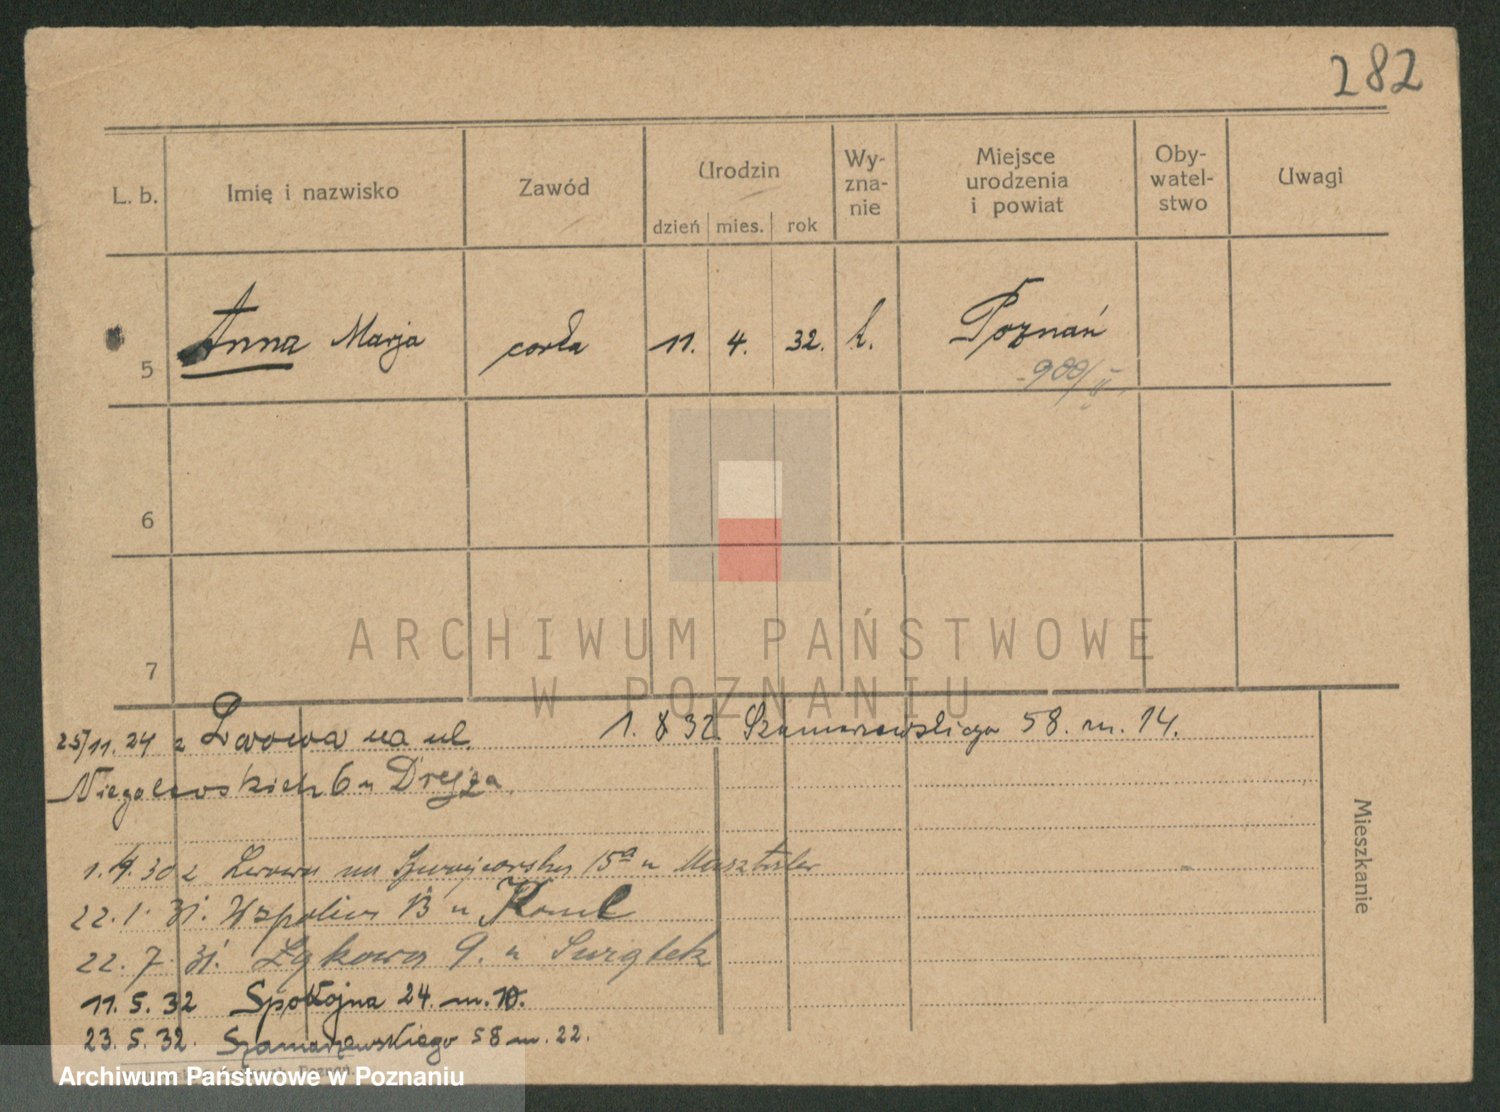 282
L. b. Imię i nazwisko Zawód Urodzin dzień mies. rok Wy-zna-nie Miejsce urodzenia i powiat Oby-watel-stwo Uwagi
5 Anna Marja corka 11. 4. 32. k. Poznań
900/II
6
7
ARCHIWUM PAŃSTWOWE
W POZNANIU
25/11.24 z Lwowa na ul. 1. 8 32. Szamarzewskiego 58. m. 14.
Niegolewskich 6 u Drejza
Mieszkanie
1.4.30 z Lwowa na 15a u
22.1.31. 13 u
22.7.31. Łąkowa 9. u Świątek
11.5.32 Spokojna 24. m. 10.
23.5.32. Szamarzewskiego 58 m. 22.
Archiwum Państwowe w Poznaniu